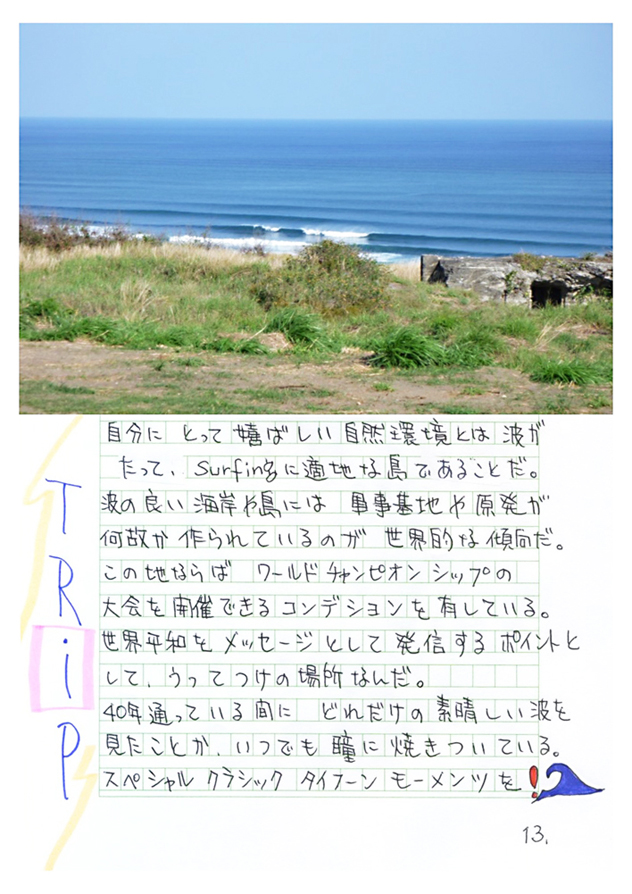 自分に とって 嬉ばしい 自然環境とは 波が
たって、surfingに適地な島であることだ。
波の良い海岸や島には 軍事基地や原発が
何故か作られているのが 世界的な傾向だ。
この地ならば ワールドチャンピオンシップの
大会を開催できるコンデションを有している。
世界平和をメッセージとして発信するポイントと
して、うってつけの場所なんだ。
40年通っている間に どれだけの素晴しい波を
見たことか、いつでも瞳に焼きついている。
スペシャル クラシック タイフーン モーメンツを!
TRiP
13.